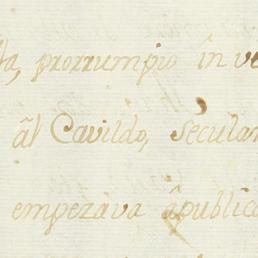 ta, prorrumpio în ve
âl Cavildo, secular
empezáva âpublica